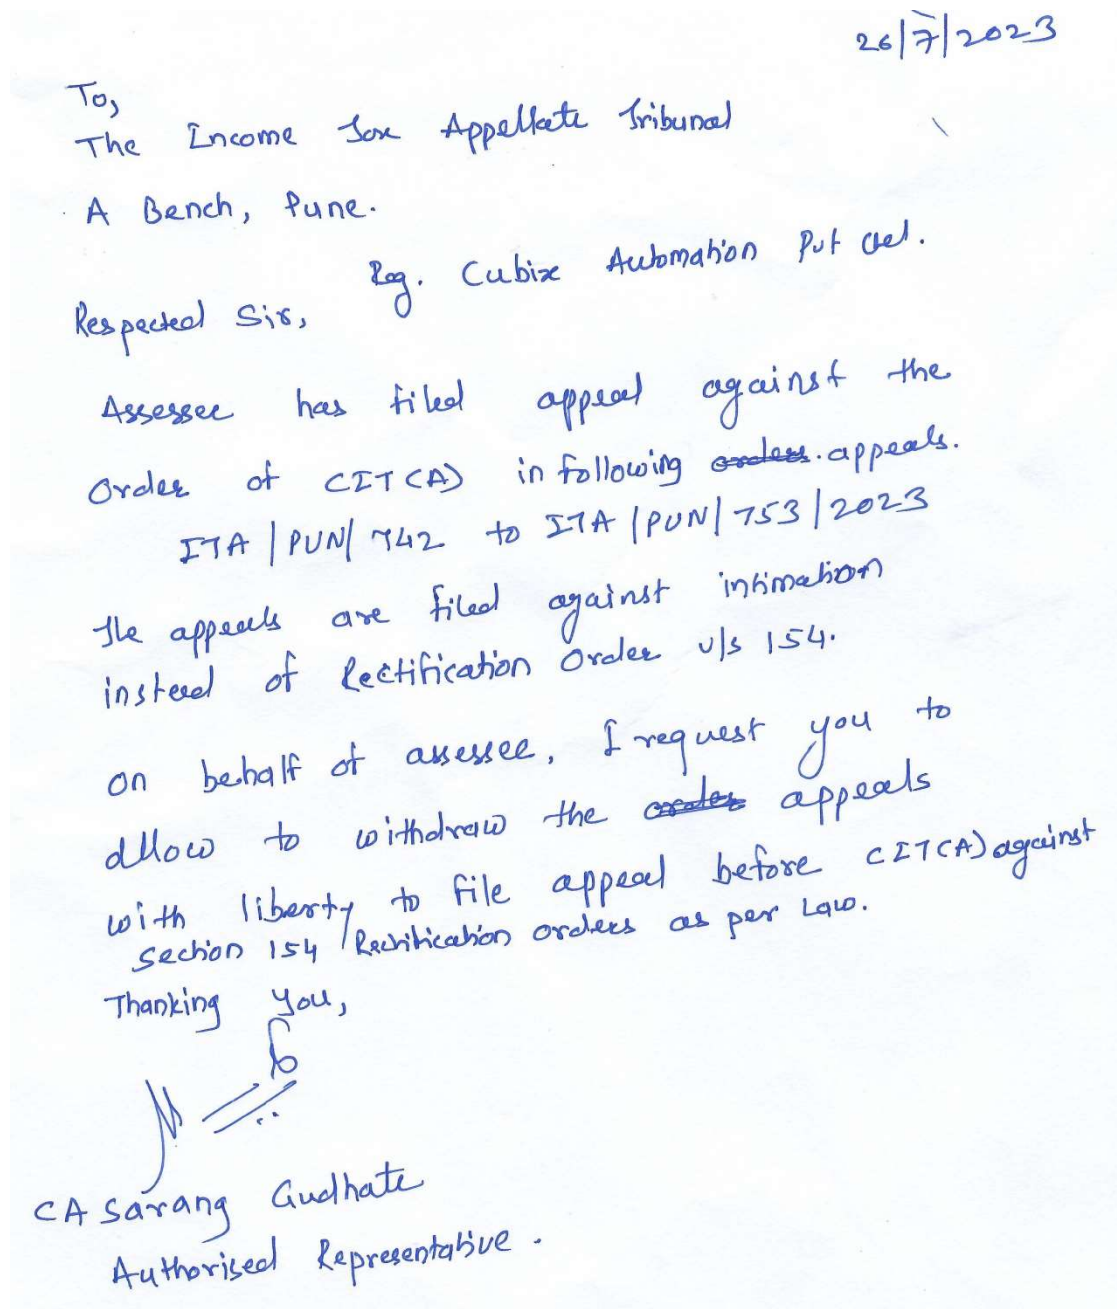 26/7/2023
To,
The Income Tax Appellate Tribunal
A Bench, Pune.
Reg. Cubix Automation Pvt Ltd.
Respected Sir,
Assessee has filed appeal against the
Order of CIT(A) in following orders. appeals.
ITA/PUN/742 to ITA/PUN/753/2023
The appeals are filed against intimation
instead of Rectification Order u/s 154.
on behalf of assessee, I request you to
allow to withdraw the orders appeals
with liberty to file appeal before CIT(A) against
Section 154 Rectification orders as per Law.
Thanking you,
CA Sarang Gudhate
Authorised Representative.